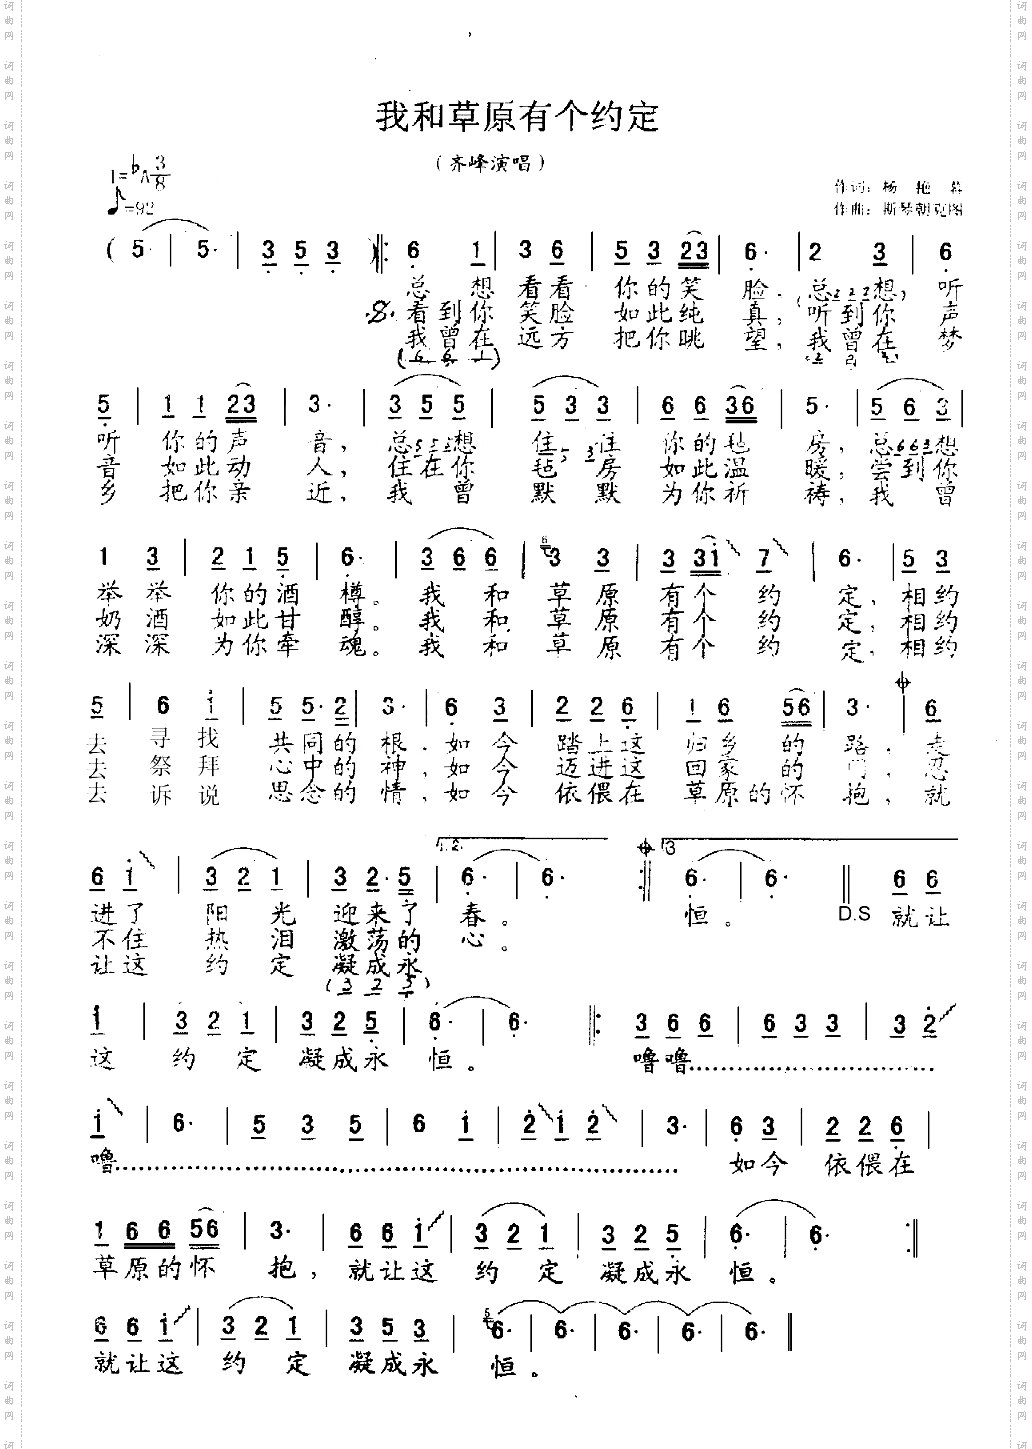 我和草原有个约定
（齐峰演唱）
1=♭A 3/8
♪=92
作词：杨 艳 蕃
作曲：斯琴朝克图
( 5· | 5· | 3 5 3 ‖: 6 1 | 3 6 | 5 3 23 | 6· | 2 3 | 6
总 想 看看 你的笑 脸．总 想 听
看到你 笑脸 如此纯 真，听到你 声
我曾在 远方 把你眺 望，我曾在 梦
5 | 1 1 23 | 3· | 3 5 5 | 5 3 3 | 6 6 36 | 5· | 5 6 3 |
听 你的声 音，总 想 住 住 你的毡 房，总 想
音 如此动 人，住在你 毡 房 如此温 暖；尝到你
乡 把你亲 近，我 曾 默 默 为你祈 祷，我 曾
1 3 | 2 1 5 | 6· | 3 6 6 | 3 3 | 3 3i | 7 | 6· | 5 3
举 举 你的酒 樽。我 和 草 原 有个 约 定，相约
奶 酒 如此甘 醇。我 和 草 原 有个 约 定，相约
深 深 为你牵 魂。我 和 草 原 有个 约 定，相约
5 | 6 i | 5 5· 2 | 3· | 6 3 | 2 2 6 | 1 6 56 | 3· | 6
去 寻 找 共同的 根．如 今 踏上这 归乡 的 路，走
去 祭 拜 心中的 神，如 今 迈进这 回家 的 门，忍
去 诉 说 思念的 情，如 今 依偎在 草原的怀 抱，就
1. 2. 3
6 i | 3 2 1 | 3 2· 5 | 6· | 6· :‖ 6· | 6· ‖ 6 6
进了 阳 光 迎来了 春。 恒。 D.S 就让
不住 热 泪 激荡的 心。
让这 约 定 凝成永
(3 2 5)
1 | 3 2 1 | 3 2 5 | 6· | 6· ‖: 3 6 6 | 6 3 3 | 3 2
这 约 定 凝成永 恒。 噜噜……
i | 6· | 5 3 5 | 6 i | 2 i 2 | 3· | 6 3 | 2 2 6 |
噜…… 如今 依偎在
1 6 6 56 | 3· | 6 6 i | 3 2 1 | 3 2 5 | 6· | 6· :‖
草原的怀 抱，就让这 约 定 凝成永 恒。
6 6 i | 3 2 1 | 3 5 3 | 6· | 6· | 6· | 6· | 6· ‖
就让这 约 定 凝成永 恒。